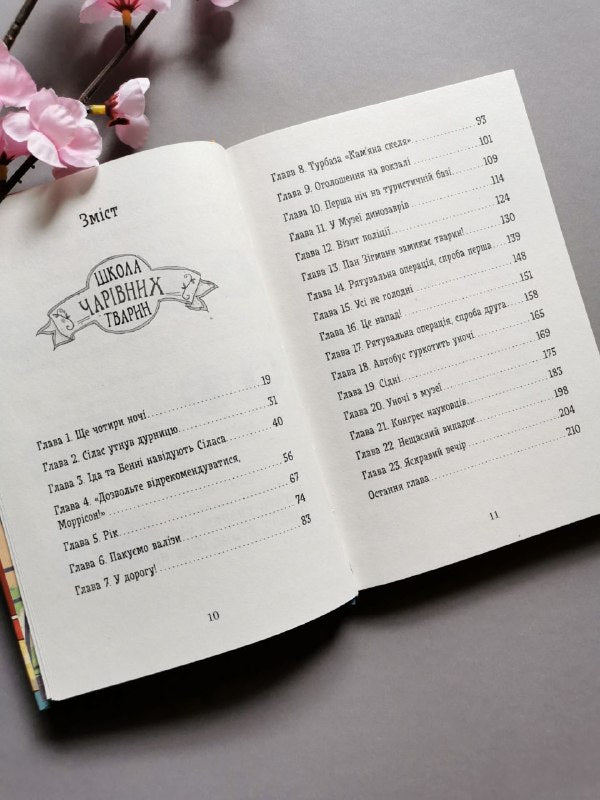 Зміст
ШКОЛА
ЧАРІВНИХ
ТВАРИН
Глава 1. Ще чотири ночі 19
Глава 2. Сілас утнув дурницю 31
Глава 3. Іда та Бенні навідують Сіласа 40
Глава 4. «Дозвольте відрекомендуватися,
Моррісон!» 56
Глава 5. Рік 67
Глава 6. Пакуємо валізи 74
Глава 7. У дорогу! 83
10
Глава 8. Турбаза «Кам'яна скеля» 93
Глава 9. Оголошення на вокзалі 101
Глава 10. Перша ніч на туристичній базі 109
Глава 11. У Музеї динозаврів 114
Глава 12. Візит поліції 124
Глава 13. Пан Зігманн замикає тварин! 130
Глава 14. Рятувальна операція, спроба перша 139
Глава 15. Усі не голодні 148
Глава 16. Це напад! 151
Глава 17. Рятувальна операція, спроба друга 158
Глава 18. Автобус гуркотить уночі 165
Глава 19. Сідні 169
Глава 20. Уночі в музеї 175
Глава 21. Конгрес науковців 183
Глава 22. Нещасний випадок 198
Глава 23. Яскравий вечір 204
Остання глава 210
11